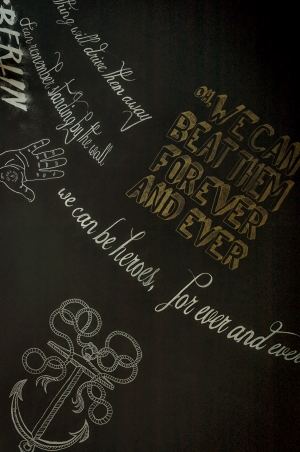 BERLIN
thing will drive them away
I can remember standing by the wall
OH, WE CAN
BEAT THEM
FOREVER
AND EVER
we can be heroes, for ever and ever